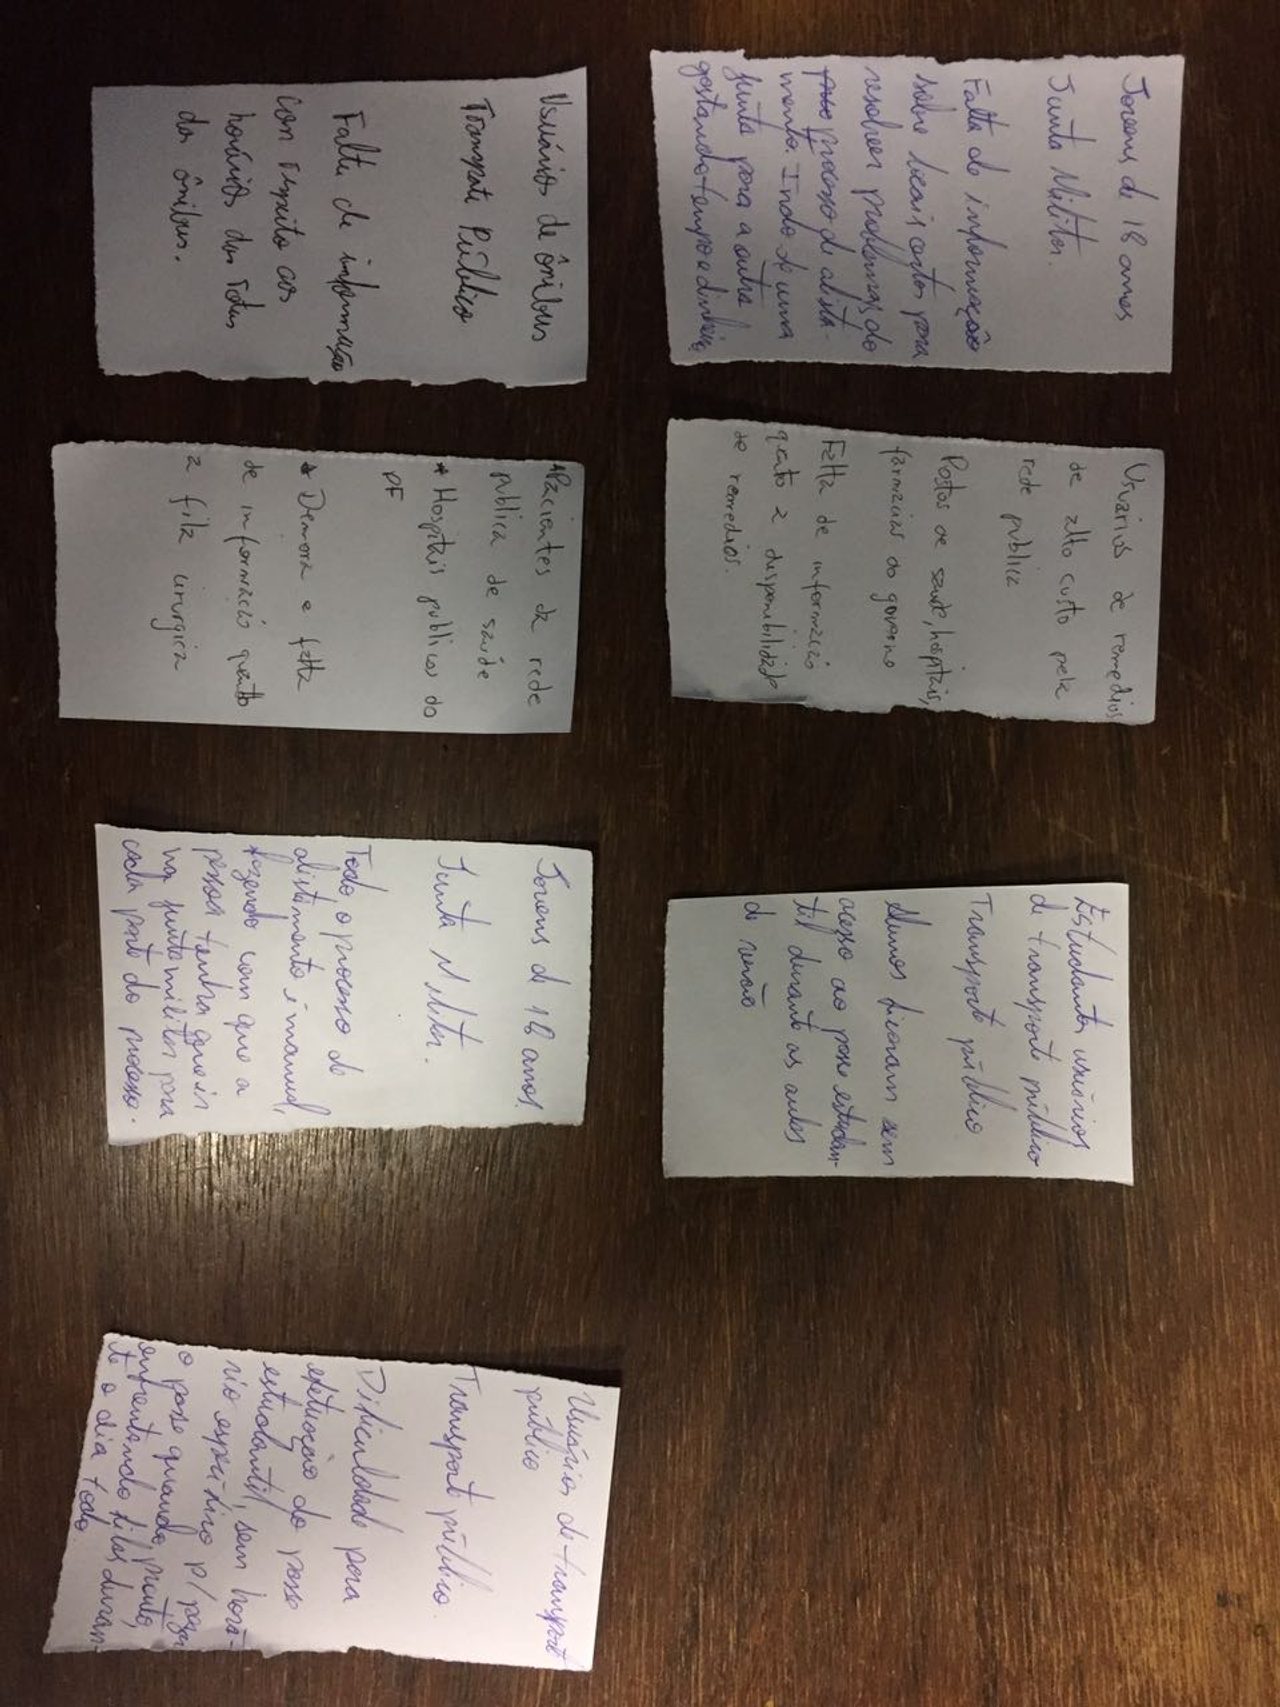 Jovens de 18 anos
Junta Militar.
Falta de informação
sobre locais certos para
resolver problemas do
processo de alista-
mento. Indo de uma
junta para a outra
gastando tempo e dinheiro
Usuarios de remedios
de alto custo pela
rede publica
Postos de saude, hospitais,
farmacias do governo
Falta de informação
quanto a disponibilidade
de remedios.
Estudantes usuários
de transporte público
Transporte público
Alunos ficaram sem
acesso ao passe estudan-
til durante as aulas
de verão
Usuários de ônibus
Transporte Público
Falta de informação
com respeito aos
horários das rotas
dos ônibus.
*Pacientes da rede
publica de saúde
* Hospitais publicos do
DF
* Demora e falta
de informação quanto
a fila cirurgica
Jovens de 18 anos.
Junta Militar.
Todo o processo de
alistamento é manual,
fazendo com que a
pessoa tenha que ir
na junta militar para
cada parte do processo.
Usuários de transporte
público
Transporte público.
Dificuldade para
efetivação do passe
estudantil, sem horá-
rio específico p/ pegar
o passe quando pronto,
enfrentando filas duran-
te o dia todo.